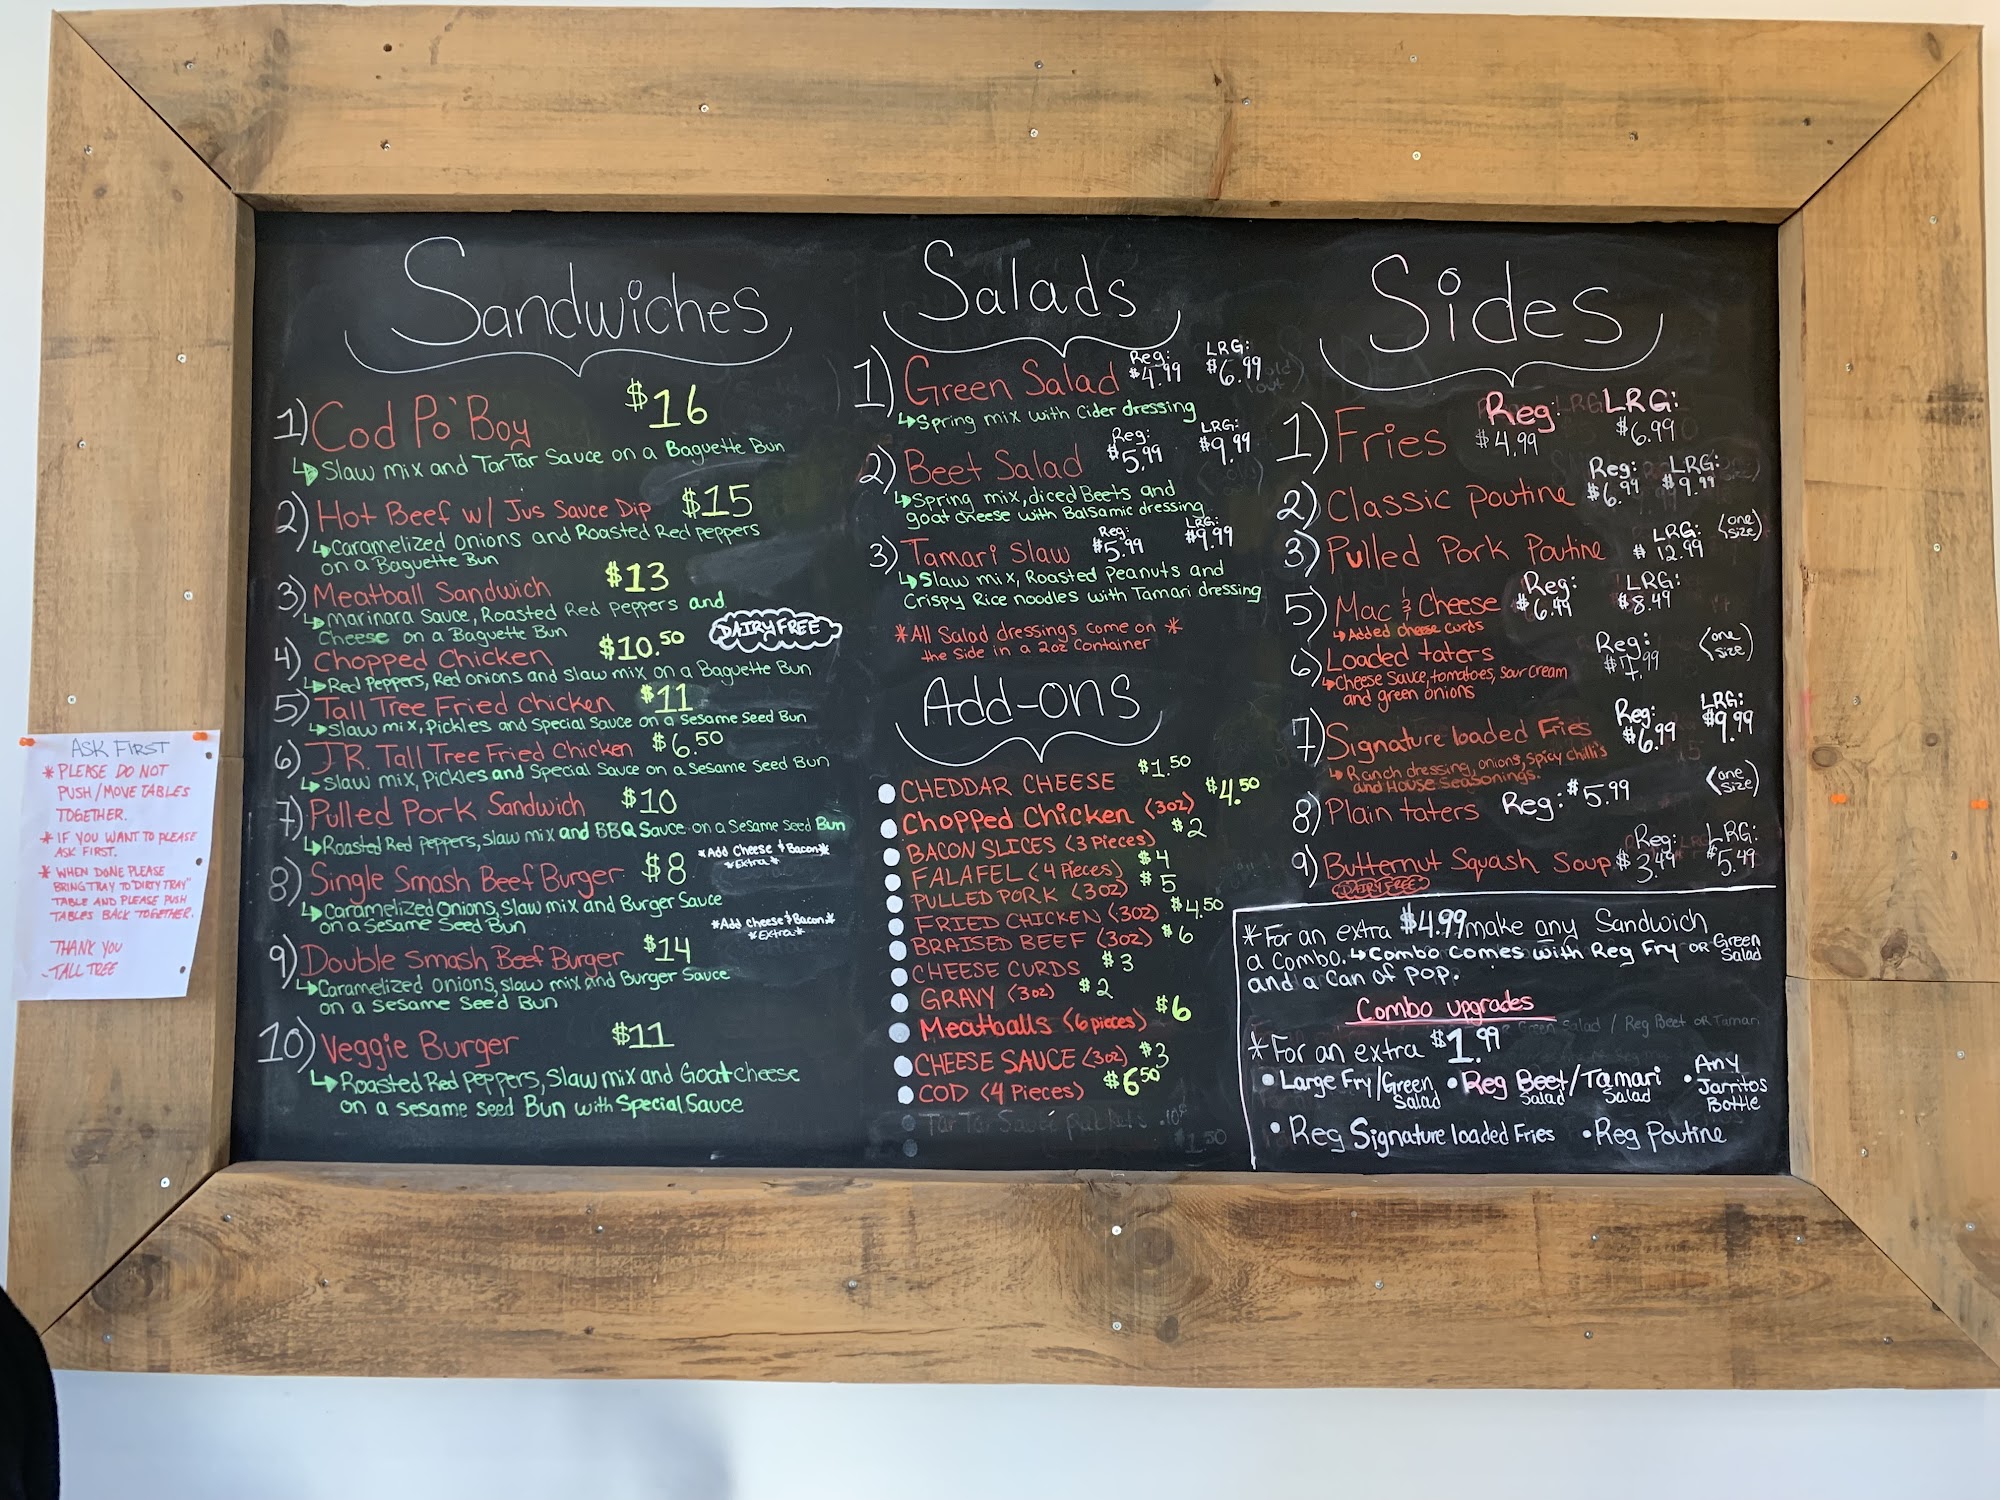 Sandwiches
1) Cod Po'Boy $16
Slaw mix and TarTar Sauce on a Baguette Bun
2) Hot Beef w/ Jus Sauce Dip $15
Caramelized onions and Roasted Red peppers
on a Baguette Bun
3) Meatball Sandwich $13
Marinara Sauce, Roasted Red Peppers and
Cheese on a Baguette Bun
4) Chopped Chicken $10.50 DAIRY FREE
Red Peppers, Red onions and Slaw mix on a Baguette Bun
5) Tall Tree Fried Chicken $11
Slaw mix, Pickles and Special Sauce on a Sesame Seed Bun
6) J.R. Tall Tree Fried Chicken $6.50
Slaw mix, Pickles and Special Sauce on a Sesame Seed Bun
7) Pulled Pork Sandwich $10
Roasted Red peppers, slaw mix and BBQ Sauce on a Sesame Seed Bun
8) Single Smash Beef Burger $8 *Add Cheese & Bacon*
*Extra*
Caramelized Onions, Slaw mix and Burger Sauce
on a Sesame Seed Bun
9) Double Smash Beef Burger $14 *Add Cheese & Bacon*
*Extra*
Caramelized onions, slaw mix and Burger Sauce
on a Sesame Seed Bun
10) Veggie Burger $11
Roasted Red Peppers, Slaw mix and Goat cheese
on a sesame seed Bun with Special Sauce
Salads
1) Green Salad Reg: $4.99 LRG: $6.99
Spring mix with Cider dressing
2) Beet Salad Reg: $5.99 LRG: $9.99
Spring mix, diced Beets and
goat cheese with Balsamic dressing
3) Tamari Slaw Reg: $5.99 LRG: $9.99
Slaw mix, Roasted Peanuts and
Crispy Rice noodles with Tamari dressing
*All Salad dressings come on *
the side in a 2oz Container
Add-ons
CHEDDAR CHEESE $1.50
Chopped Chicken (3oz) $4.50
BACON SLICES (3 Pieces) $2
FALAFEL (4 Pieces) $4
PULLED PORK (3oz) $5
FRIED CHICKEN (3oz) $4.50
BRAISED BEEF (3oz) $6
CHEESE CURDS $3
GRAVY (3oz) $2
Meatballs (6 pieces) $6
CHEESE SAUCE (3oz) $3
COD (4 Pieces) $6.50
TarTar Sauce
$1.50
Sides
1) Fries Reg: $4.99 LRG: $6.99
2) Classic Poutine Reg: $6.99 LRG: $9.99
3) Pulled Pork Poutine LRG: $12.99 (one size)
5) Mac & Cheese Reg: $6.49 LRG: $8.49
Added cheese curds
6) Loaded taters Reg: $7.99 (one size)
Cheese Sauce, tomatoes, Sour Cream
and green onions
7) Signature loaded Fries Reg: $6.99 LRG: $9.99
Ranch dressing, onions, Spicy chilli's
and House Seasonings.
8) Plain taters Reg: $5.99 (one size)
9) Butternut Squash Soup Reg: $3.49 LRG: $5.49
DAIRY FREE
*For an extra $4.99 make any Sandwich
a Combo. Combo comes with Reg Fry OR Green Salad
and a Can of Pop.
Combo upgrades
*For an extra $1.99
• Large Fry/Green Salad • Reg Beet Salad/Tamari Salad • Any Jarritos Bottle
• Reg Signature loaded Fries • Reg Poutine
ASK FIRST
* PLEASE DO NOT
PUSH/MOVE TABLES
TOGETHER.
* IF YOU WANT TO PLEASE
ASK FIRST.
* WHEN DONE PLEASE
BRING TRAY TO "DIRTY TRAY"
TABLE AND PLEASE PUSH
TABLES BACK TOGETHER.
THANK YOU
- TALL TREE